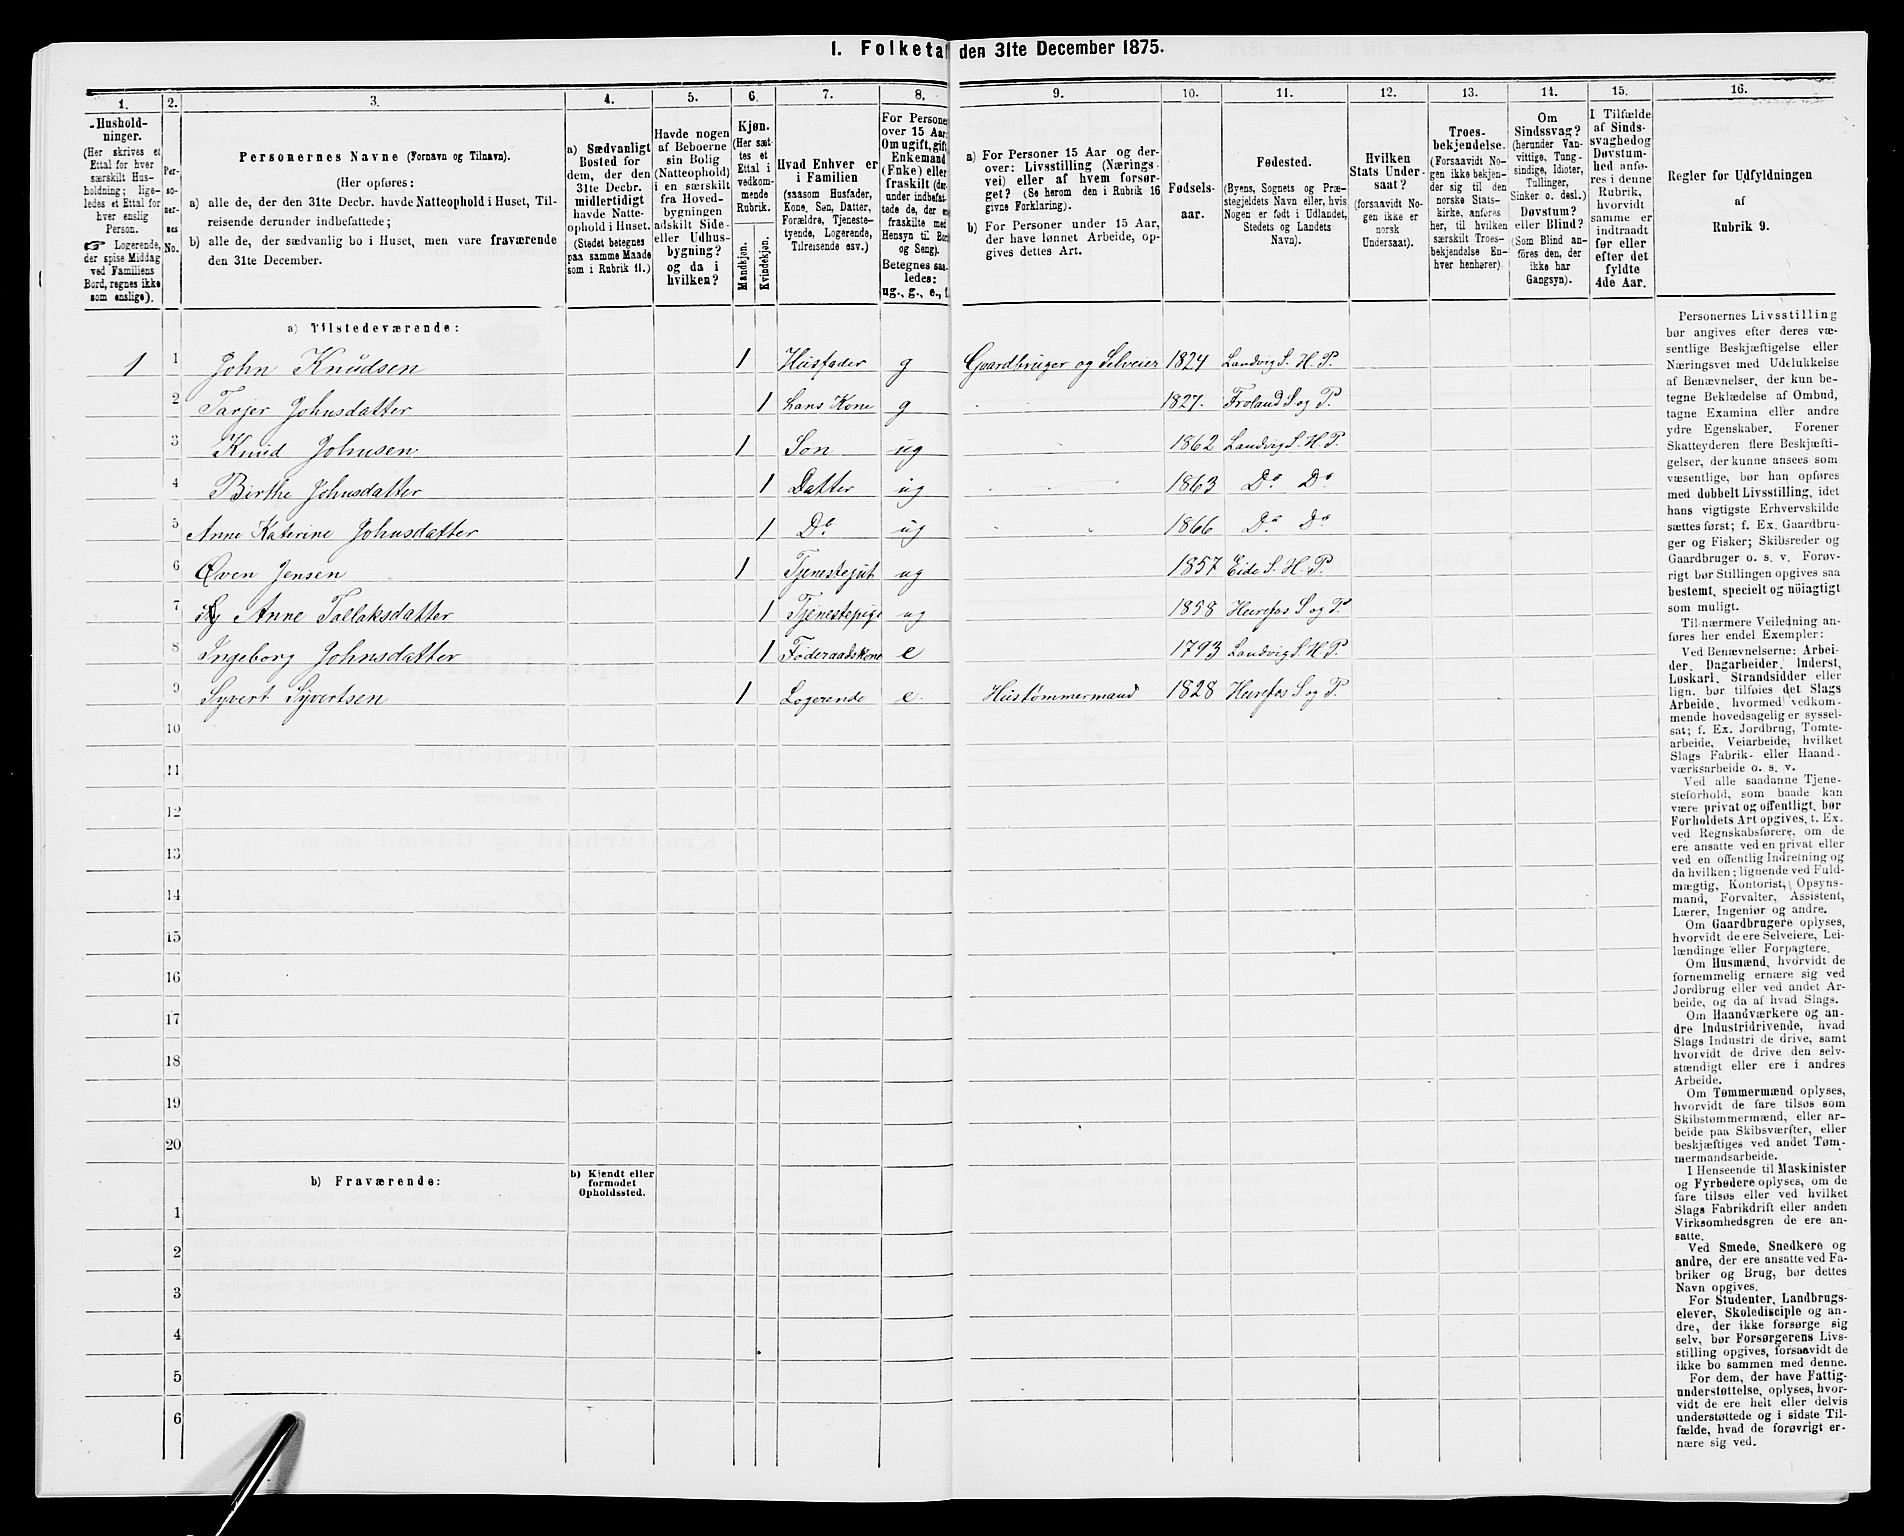 I. Folketal den 31te December 1875.
1. 2. 3. 4. 5. 6. 7. 8. 9. 10. 11. 12. 13. 14. 15. 16.
Hushold-
ninger.
(Her skrives et
Ettal for hver
særskilt Hus-
holdning; lige-
ledes et Ettal for
hver enslig
Person.
☞ Logerende,
der spise Middag
ved Familiens
Bord, regnes ikke
som enslige).
Per-
so-
ner-
nes
No.
Personernes Navne (Fornavn og Tilnavn).
(Her opføres:
a) alle de, der den 31te Decbr. havde Natteophold i Huset, Til-
reisende derunder indbefattede;
b) alle de, der sædvanlig bo i Huset, men vare fraværende
den 31te December.
a) Sædvanligt
Bosted for
dem, der den
31te Decbr.
midlertidigt
havde Natte-
ophold i Huset.
(Stedet betegnes
paa samme Maade
som i Rubrik 11.)
Havde nogen
af Beboerne
sin Bolig
(Natteophold)
i en særskilt
fra Hoved-
bygningen
adskilt Side-
eller Udhus-
bygning?
og da i
hvilken?
Kjøn.
(Her sæt-
tes et
Ettal i
vedkom-
mende
Rubrik.
Mandkjøn.
Kvindekjøn.
Hvad Enhver er
i Familien
(saasom Husfader,
Kone, Søn, Datter,
Forældre, Tjeneste-
tyende, Logerende,
Tilreisende osv.)
For Personer
over 15 Aar:
Om ugift, gift,
Enkemand
(Enke) eller
fraskilt (der-
under indbefat-
tede de, der ere
fraskilte med
Hensyn til Bord
og Seng).
Betegnes saa-
ledes:
ug., g., e., f.
a) For Personer 15 Aar og der-
over: Livsstilling (Nærings-
vei) eller af hvem forsør-
get? (Se herom den i Rubrik 16
givne Forklaring).
b) For Personer under 15 Aar,
der have lønnet Arbeide, op-
gives dettes Art.
Fødsels-
aar.
Fødested.
(Byens, Sognets og Præ-
stegjeldets Navn, eller, hvis
Nogen er født i Udlandet,
Stedets og Landets
Navn).
Hvilken
Stats Under-
saat?
(forsaavidt No-
gen ikke er
norsk
Undersaat).
Troes-
bekjendelse.
(Forsaavidt No-
gen ikke bekjen-
der sig til den
norske Stats-
kirke, anføres
her, til hvilken
særskilt Troes-
bekjendelse En-
hver henhører).
Om
Sindssvag?
(herunder Van-
vittige, Tung-
sindige, Idioter,
Tullinger,
Sinker o. desl.)
Døvstum?
eller Blind?
(Som Blind an-
føres den, der
ikke har
Gangsyn).
I Tilfælde
af Sinds-
svaghed og
Døvstum-
hed anfø-
res i denne
Rubrik,
hvorvidt
samme er
indtraadt
før eller
efter det
fyldte
4de Aar.
Regler for Udfyldningen
af
Rubrik 9.
a) Tilstedeværende:
1 1 John Knudsen 1 Husfader g Gaardbruger og Selveier 1824 Landvig S. H. P.
2 Tarjer Johnsdatter 1 hans Kone g 1827. Froland S og P.
3 Knud Johnsen 1 Søn ug 1862 Landvig S. H. P.
4 Birthe Johnsdatter 1 Datter ug 1863 Do Do
5 Anne Katerine Johnsdatter 1 Do ug 1866 Do Do
6 Øven Jensen 1 Tjenestejut ug 1857 Eide S. H. P.
7 Anne Tallaksdatter 1 Tjenestepige ug 1858 Herefos S og P
8 Ingeborg Johnsdatter 1 Føderaadskone e 1793 Landvig S. H. P.
9 Syvert Syvertsen 1 Logerende e. Hustømmermand 1828 Herefos S og P.
10
11
12
13
14
15
16
17
18
19
20
b) Fraværende:
b) Kjendt eller
formodet
Opholdssted.
1
2
3
4
5
6
Personernes Livsstilling
bør angives efter deres væ-
sentlige Beskjæftigelse eller
Næringsvei med Udelukkelse
af Benævnelser, der kun be-
tegne Beklædelse af Ombud,
tagne Examina eller andre
ydre Egenskaber. Forener
Skatteyderen flere Beskjæfti-
gelser, der kunne ansees som
væsentlige, bør han opføres
med dobbelt Livsstilling, idet
hans vigtigste Erhvervskilde
sættes først; f. Ex. Gaardbru-
ger og Fisker; Skibsreder og
Gaardbruger o. s. v. Forøv-
rigt bør Stillingen opgives saa
bestemt, specielt og nöiagtigt
som muligt.
Til nærmere Veiledning an-
føres her endel Exempler:
Ved Benævnelserne: Arbei-
der, Dagarbeider, Inderst,
Løskarl, Strandsidder eller
lign. bør tilføies det Slags
Arbeide, hvormed vedkom-
mende hovedsagelig er syssel-
sat; f. Ex. Jordbrug, Tomte-
arbeide, Veiarbeide, hvilket
Slags Fabrik- eller Haand-
værksarbeide o. s. v.
Ved alle saadanne Tjene-
steforhold, som baade kan
være privat og offentligt, bør
Forholdets Art opgives, t. Ex.
ved Regnskabsførere, om de
ere ansatte ved en privat eller
ved en offentlig Indretning og
da hvilken; lignende ved Fuld-
mægtig, Kontorist, Opsyns-
mand, Forvalter, Assistent,
Lærer, Ingeniør og andre.
Om Gaardbrugere oplyses,
hvorvidt de ere Selveiere, Lei-
lændinge eller Forpagtere.
Om Husmænd, hvorvidt de
fornemmelig ernære sig ved
Jordbrug eller ved andet Ar-
beide, og da af hvad Slags.
Om Haandværkere og an-
dre Industridrivende, hvad
Slags Industri de drive, samt
hvorvidt de drive den selv-
stændigt eller ere i andres
Arbeide.
Om Tømmermænd oplyses,
hvorvidt de fare tilsøs som
Skibstømmermænd, eller ar-
beide paa Skibsværfter, eller
beskjæftiges ved andet Tøm-
mermandsarbeide.
I Henseende til Maskinister
og Fyrbødere oplyses, om de
fare tilsøs eller ved hvilket
Slags Fabrikdrift eller anden
Virksomhedsgren de ere an-
satte.
Ved Smede, Snedkere og
andre, der ere ansatte ved Fa-
briker og Brug, bør dettes
Navn opgives.
For Studenter, Landbrugs-
elever, Skoledisciple og an-
dre, der ikke forsørge sig
selv, bør Forsørgerens Livs-
stilling opgives, forsaavidt de
ikke bo sammen med denne.
For dem, der have Fattig-
understøttelse, oplyses, hvor-
vidt de ere helt eller delvis
understøttede og i sidste Til-
fælde, hvad de forøvrigt er-
nære sig ved.